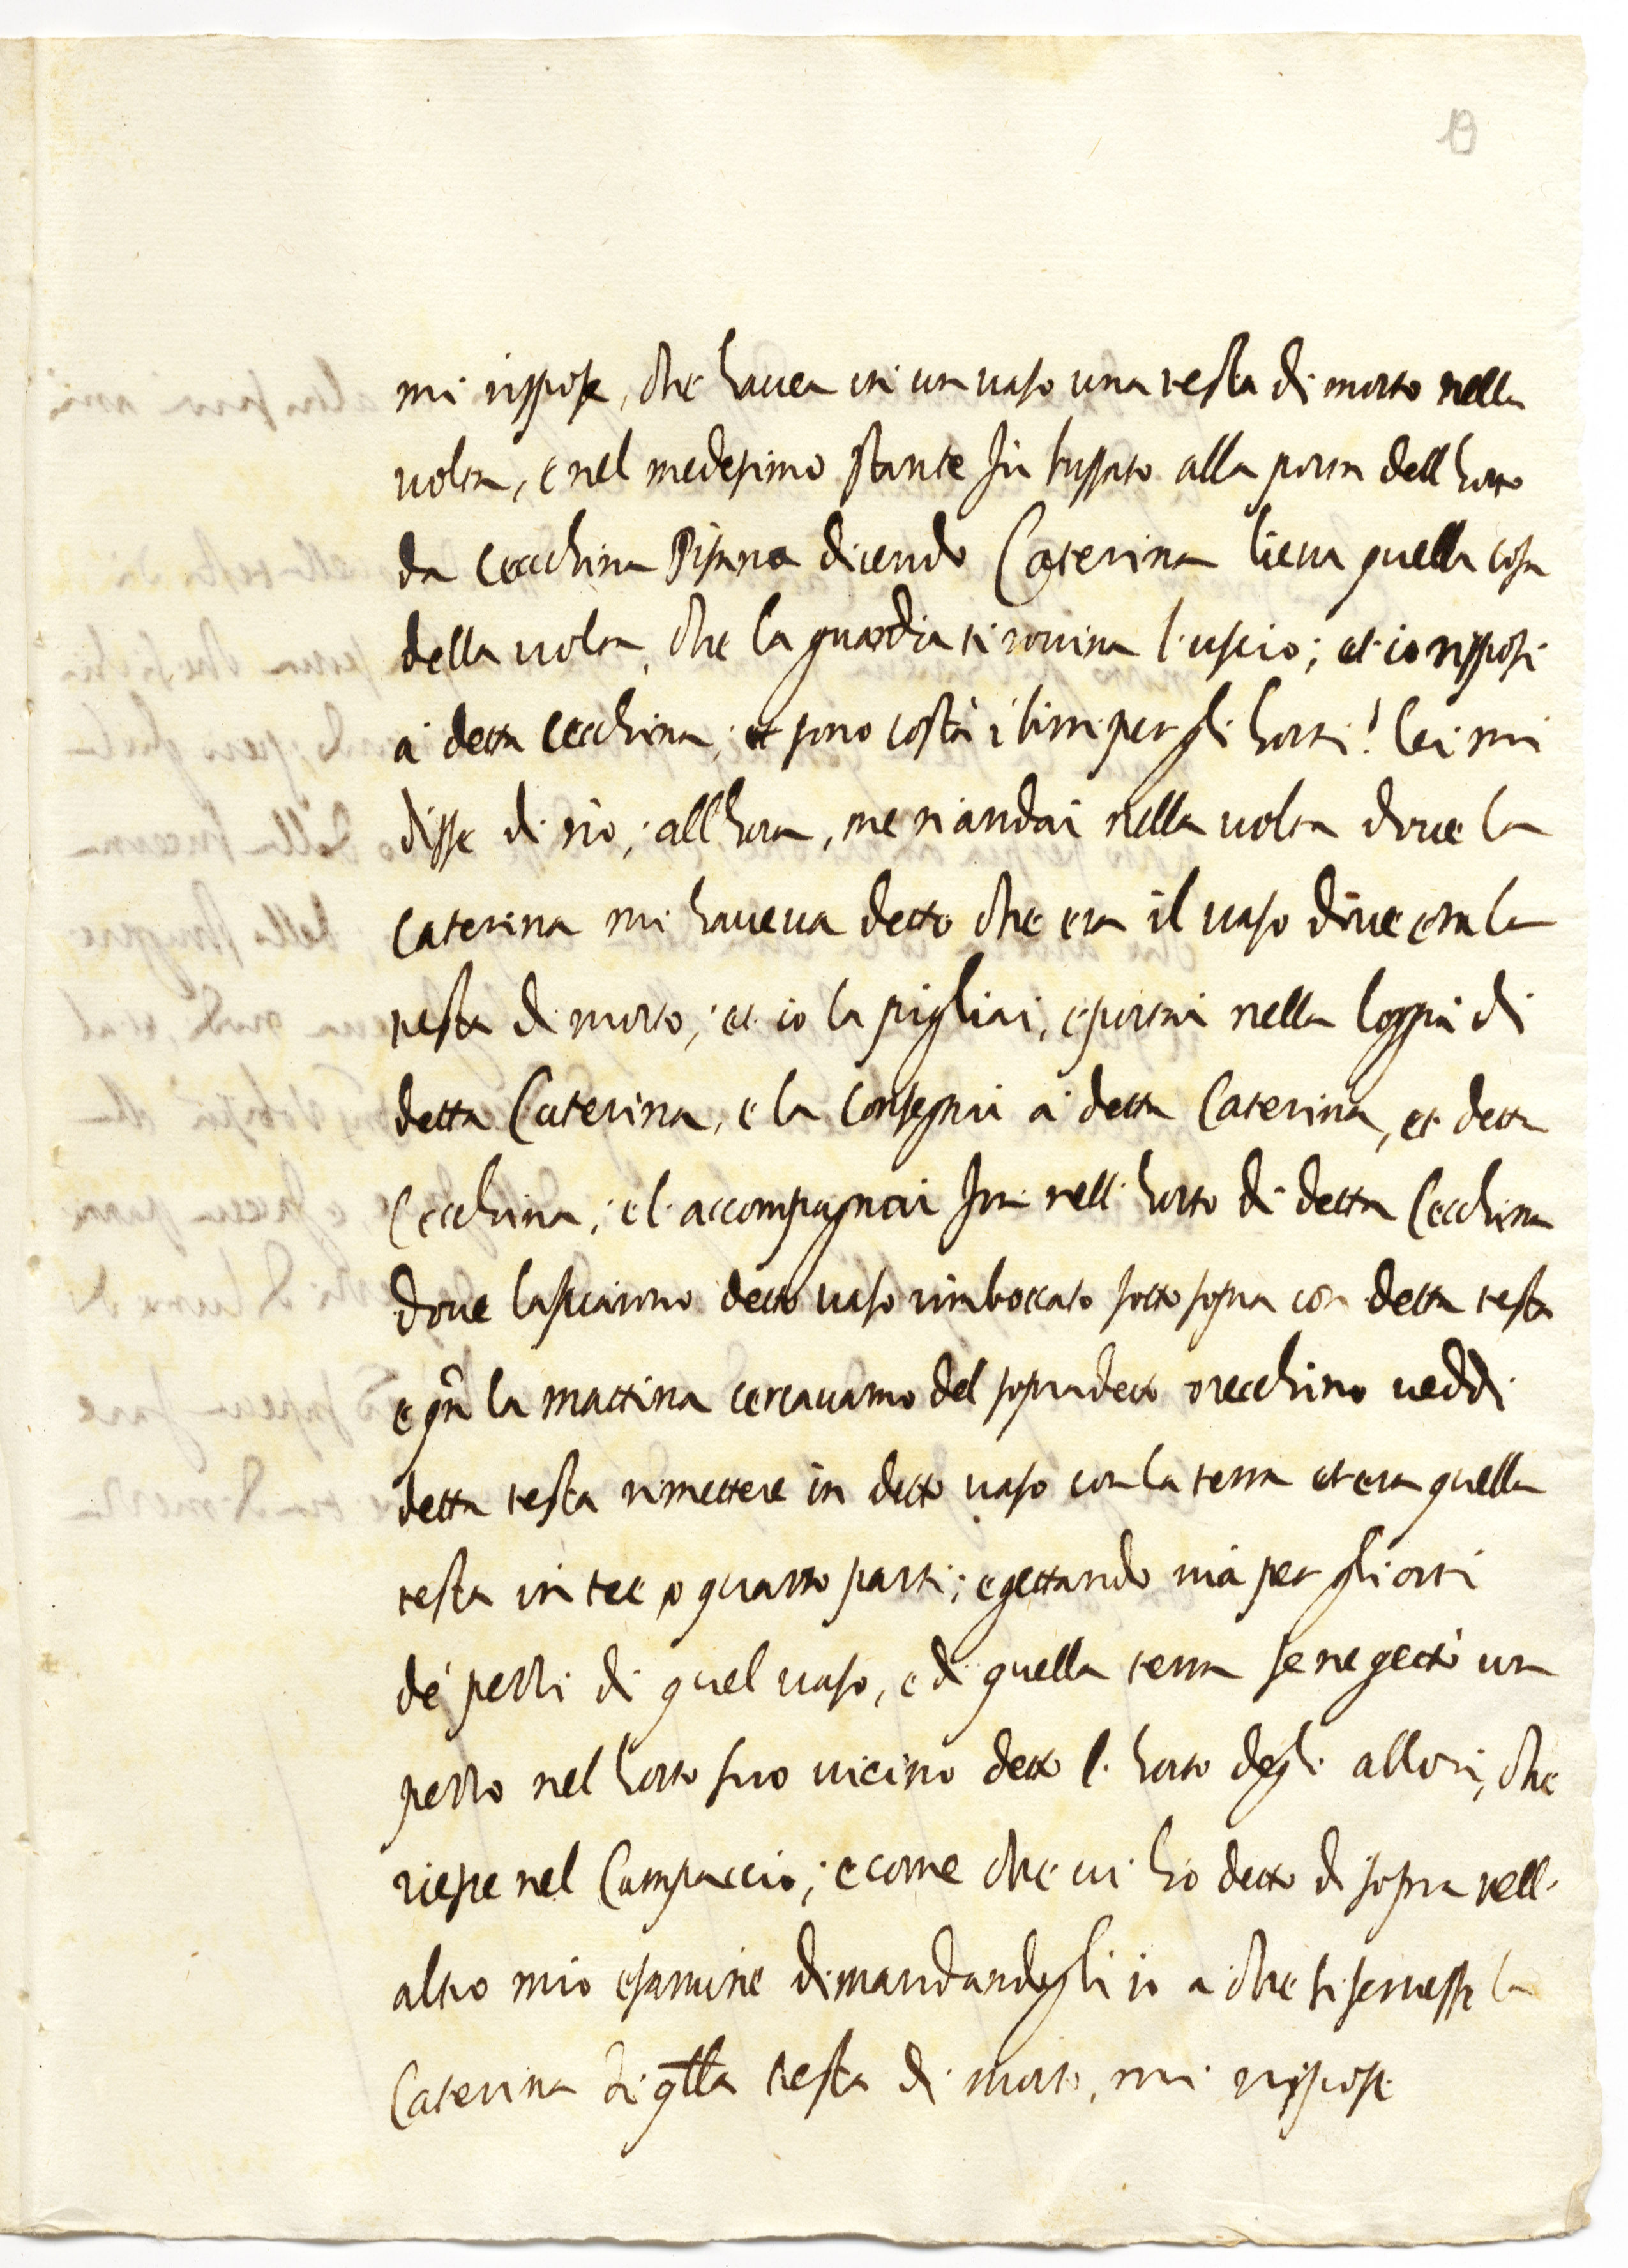 13
mi rispose, che havea in un vaso una testa di morto nella
volta, e nel medesimo stante fù bussato alla porta dell horto
da Cecchina Pisana dicendo Caterina lieva quella cosa
della volta, che la guardia ti rovina l'uscio; et io risposi
à detta Cecchina, et sono costà i birri per gli horti! lei mi
disse di nò; all'hora, me n'andai nella volta dove la
Caterina mi haveva detto che era il vaso dove era la
testa di morto; et io la pigliai, e portai nella loggia di
detta Caterina, e la consegnai à detta Caterina, et detta
Cecchina; e l'accompagnai fin nell'horto di detta Cecchina
dove lasciamo detto vaso rimboccato sotto sopra con detta testa
e qn̄ la mattina cercavamo del sopradetto orecchino veddi
detta testa rimettere in detto vaso con la terra et era quella
testa in tre o quattro parti; e gettando via per gli orti
de' pezzi di quel vaso, e di quella terra se ne gettò un
pezzo nel horto suo vicino detto l'horto degli allori, che
riesce nel Campaccio; e come che vi hò detto di sopra nell'
altro mio esamine dimandandogli io a che si servisse la
Caterina di qlla testa di morto, mi rispose